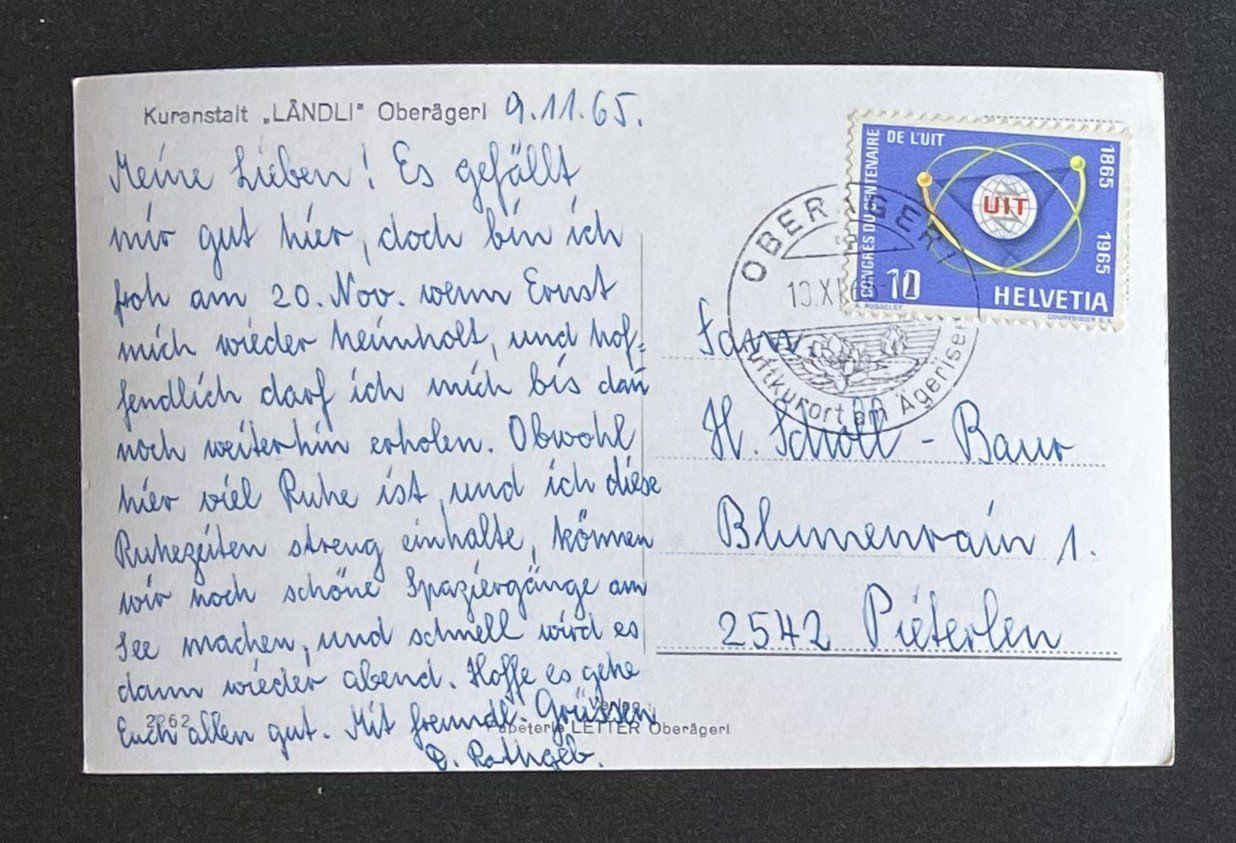 Kuranstalt „LÄNDLI" Oberägeri 9.11.65.
Meine Lieben! Es gefällt
mir gut hier, doch bin ich
froh am 20. Nov. wenn Ernst
mich wieder heimholt, und hof-
fendlich darf ich mich bis dan̄
noch weiterhin erholen. Obwohl
hier viel Ruhe ist, und ich diese
Ruhezeiten streng einhalte, können
wir noch schöne Spaziergänge am
See machen, und schnell wird es
dann wieder abend. Hoffe es gehe
Euch allen gut. Mit freundl. Grüssen
Rathgeb.
2262
Verlag:
Papeterie LETTER Oberägeri
CONGRÈS DU CENTENAIRE
DE L'UIT
1865 1965
UIT
10
HELVETIA
COURVOISIER S.A.
OBERÄGERI
10.XI.65
Luftkurort am Ägerisee
Fam.
H. Scholl - Baur
Blumenrain 1.
2542 Pieterlen